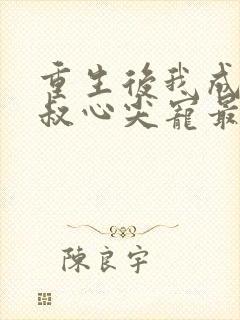 重生後我成
叔心尖寵最
陳良宇